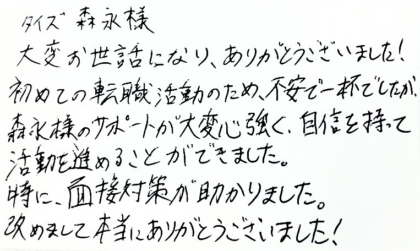 タイズ 森永様
大変お世話になり、ありがとうございました!
初めての転職活動のため、不安で一杯でしたが、
森永様のサポートが大変心強く、自信を持って
活動を進めることができました。
特に、面接対策が助かりました。
改めまして本当にありがとうございました!